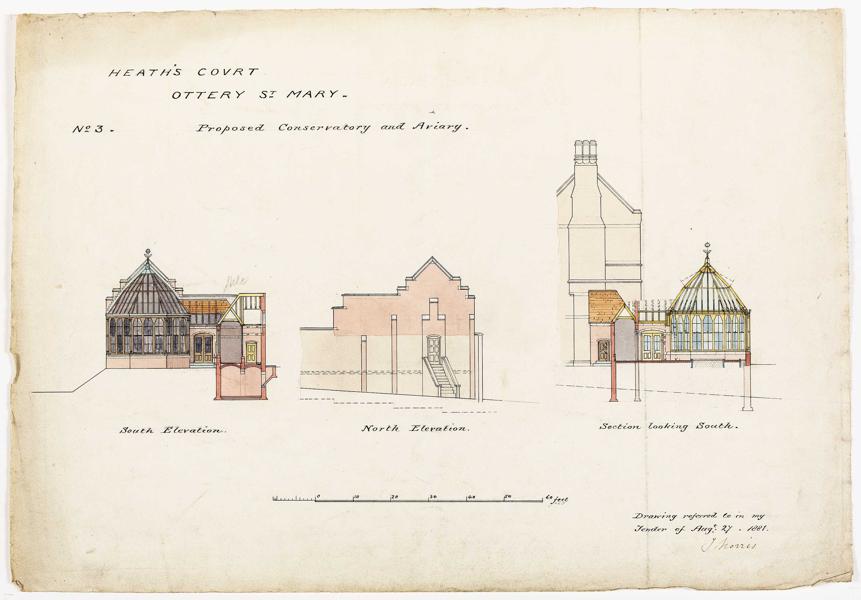 HEATH'S COVRT
OTTERY ST MARY.
No 3. Proposed Conservatory and Aviary.
South Elevation.
North Elevation.
Section looking South.
0 10 20 30 40 50 60 feet
Drawing referred to in my
Tender of Augt. 27. 1881.
J. Morris